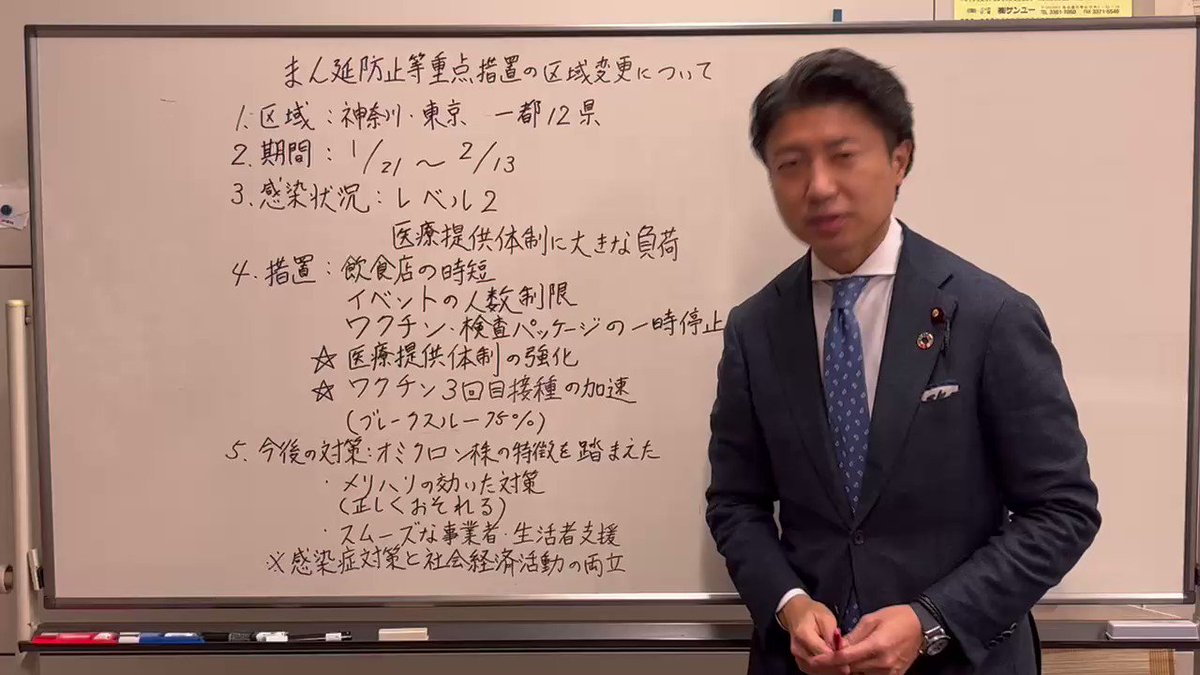 ㈱サンユー
TEL 3361-7860 FAX 3371-5540
まん延防止等重点措置の区域変更について
1. 区域：神奈川・東京 一都12県
2. 期間：1/21〜2/13
3. 感染状況：レベル2
医療提供体制に大きな負荷
4. 措置：飲食店の時短
イベントの人数制限
ワクチン・検査パッケージの一時停止
☆ 医療提供体制の強化
☆ ワクチン3回目接種の加速
(ブレークスルー75%)
5. 今後の対策：オミクロン株の特徴を踏まえた
・メリハリの効いた対策
(正しくおそれる)
・スムーズな事業者・生活者支援
※感染症対策と社会経済活動の両立